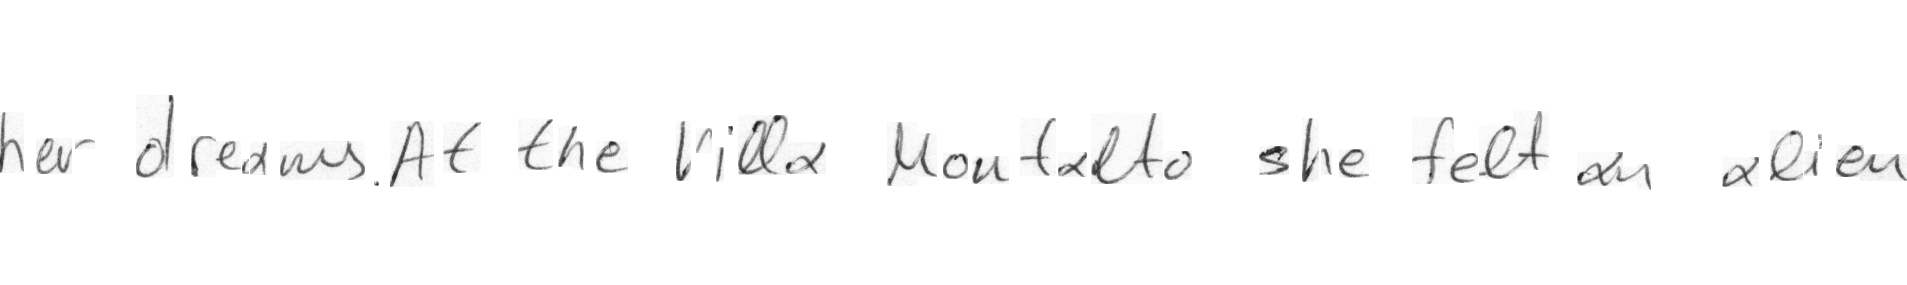 her dreams. At the Villa Montalto she felt an alien